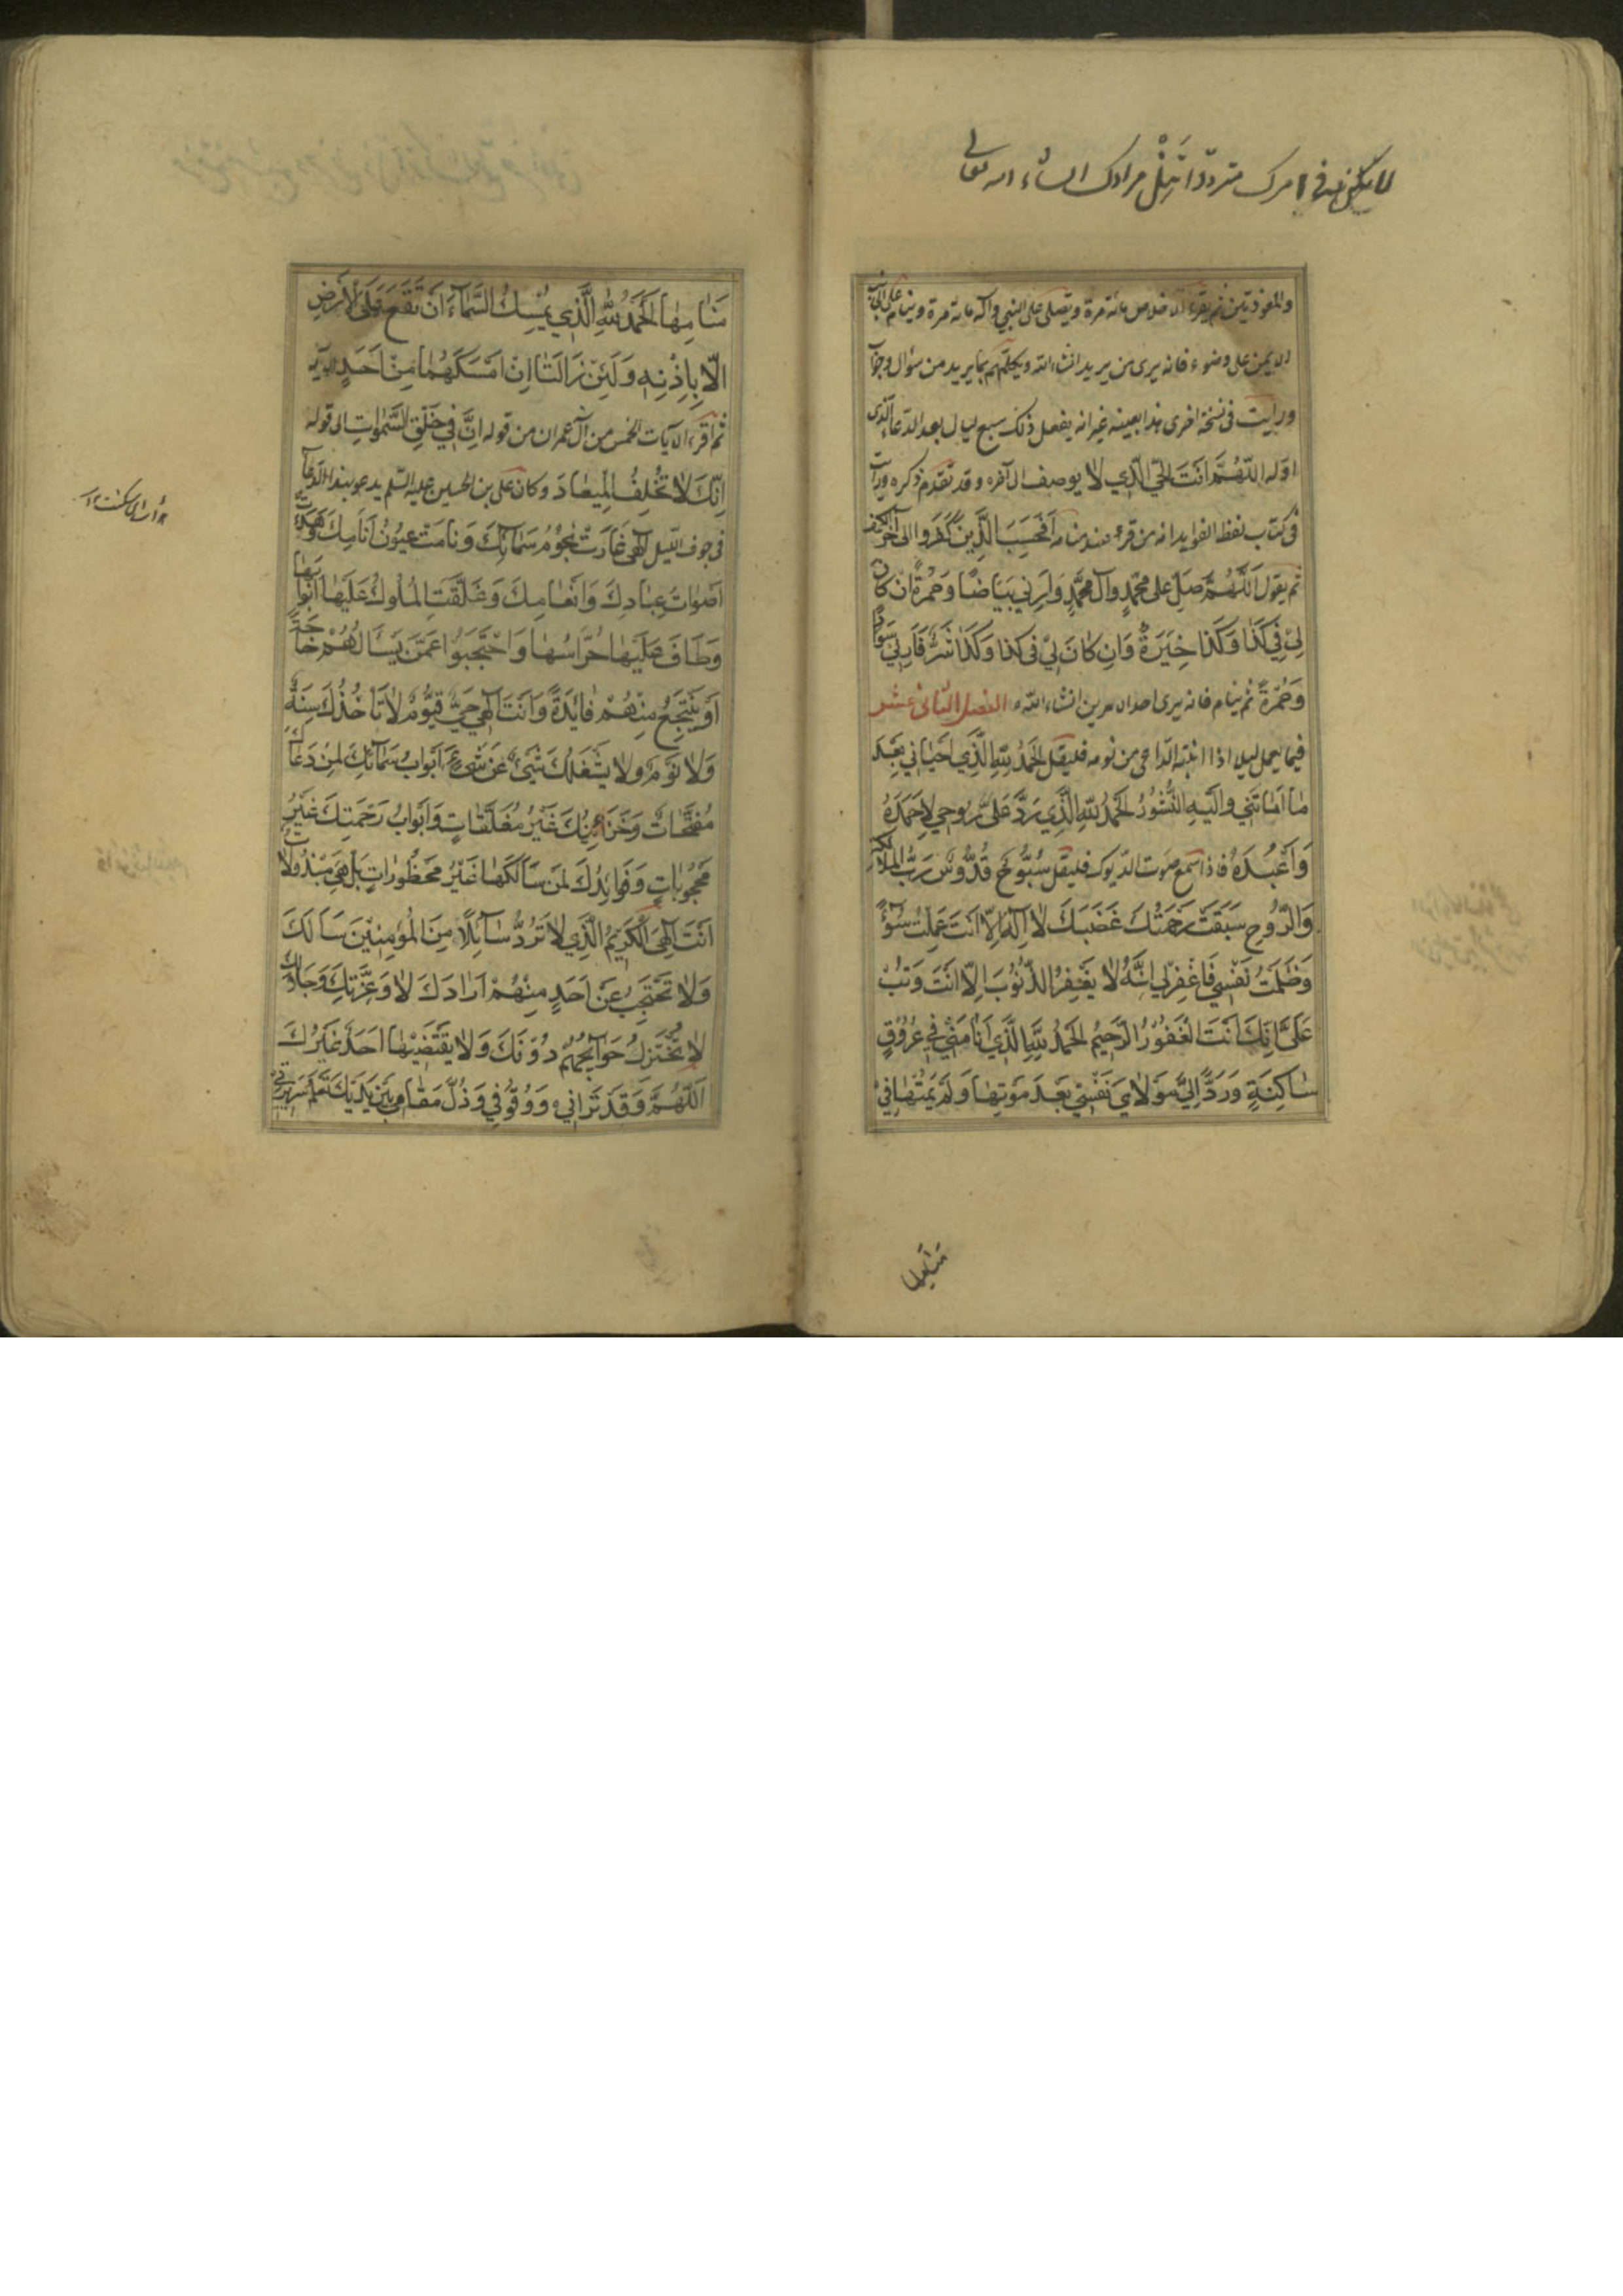 مرادك انشاء الله تعالى
والمعوذتين ثم يقرء الاخلاص مائة مرة ويصلى على النبي وآله مائة مرة وينام على الجانب
الايمن على وضوء فانه يرى من يريد انشاء الله ويكلمهم بما يريد من سؤال وجواب
ورايت فى نسخة اخرى هذا بعينه غير انه يفعل ذلك سبع ليال بعد الدعاء الذى
اوله اللَّهُمَّ اَنْتَ الْحَيُّ الَّذِي لَا يوصف الى آخره وقد تقدم ذكره ورايت
فى كتاب لفظ الفوايد انه من قرء عند منامه اَفَحَسِبَ الَّذِينَ كَفَرُوا الى آخر الكهف
ثم يقول اَللّٰهُمَّ صَلِّ عَلى مُحَمَّدٍ وَآلِ مُحَمَّدٍ وَاَرِنِي بَيَاضًا وَخُضْرَةً اِنْ كَانَ
لِيْ فِي كَذَا وَكَذَا خِيَرَةٌ وَاِنْ كَانَ لِيْ فى كَذَا وَكَذَا شَرٌّ فَاَرِنِيْ سَوَادًا
وَحُمْرَةً ثم ينام فانه يرى احد الامرين انشاء الله الفصل الثانى عشر
فيما يعمل ليلا اذا انتبه الداعى من نومه فليقل اَلْحَمْدُ لِلّٰهِ الَّذِي اَحْيَانِي بَعْدَ
مَا اَمَاتَنِي وَاِلَيْهِ النُّشُورُ اَلْحَمْدُ لِلّٰهِ الَّذِي رَدَّ عَلَيَّ رُوحِي لِاَحْمَدَهُ
وَاَعْبُدَهُ فاذا سمع صوت الديوك فليقل سُبُّوحٌ قُدُّوسٌ رَبُّ الْمَلَائِكَةِ
وَالرُّوحِ سَبَقَتْ رَحْمَتُكَ غَضَبَكَ لَا اِلٰهَ اِلَّا اَنْتَ عَمِلْتُ سُوْءً
وَظَلَمْتُ نَفْسِي فَاغْفِرْ لِي اِنَّهُ لَا يَغْفِرُ الذُّنُوْبَ اِلَّا اَنْتَ وَتُبْ
عَلَيَّ اِنَّكَ اَنْتَ الْغَفُوْرُ الرَّحِيْمُ اَلْحَمْدُ لِلّٰهِ الَّذِي اَنَامَنِيْ فِي عُرُوقٍ
سَاكِنَةٍ وَرَدَّ اِلَيَّ مَوْلَايَ نَفْسِيْ بَعْدَ مَوْتِهَا وَلَمْ يُمِتْهَا فِيْ
مَنَامِهَا
مَنَامِهَا اَلْحَمْدُ لِلّٰهِ الَّذِي يُمْسِكُ السَّمَاءَ اَنْ تَقَعَ عَلَى الْاَرْضِ
اِلَّا بِاِذْنِهِ وَلَئِنْ زَالَتَا اِنْ اَمْسَكَهُمَا مِنْ اَحَدٍ الآيه
ثم اقرء الآيات الخمس من آل عمران من قوله اِنَّ فِي خَلْقِ السَّمٰوَاتِ الى قوله
اِنَّكَ لَا تُخْلِفُ الْمِيعَادَ وكان على بن الحسين عليه السلم يدعو بهذا الدعاء
فى جوف الليل اِلٰهِي غَارَتْ نُجُوْمُ سَمَائِكَ وَنَامَتْ عُيُوْنُ اَنَامِكَ وَهَدَاَتْ
اَصْوَاتُ عِبَادِكَ وَاَنْعَامِكَ وَغَلَّقَتِ الْمُلُوكُ عَلَيْهَا اَبْوَابَهَا
وَطَافَ عَلَيْهَا حُرَّاسُهَا وَاحْتَجَبُوا عَمَّنْ يَسْاَلُهُمْ حَاجَةً
اَوْ يَنْتَجِعُ مِنْهُمْ فَائِدَةً وَاَنْتَ اِلٰهِي حَيٌّ قَيُّومٌ لَا تَاْخُذُكَ سِنَةٌ
وَلَا نَوْمٌ وَلَا يَشْغَلُكَ شَيْءٌ عَنْ شَيْءٍ اَبْوَابُ سَمَائِكَ لِمَنْ دَعَاكَ
مُفَتَّحَاتٌ وَخَزَائِنُكَ غَيْرُ مُغَلَّقَاتٍ وَاَبْوَابُ رَحْمَتِكَ غَيْرُ
مَحْجُوبَاتٍ وَفَوَائِدُكَ لِمَنْ سَاَلَكَهَا غَيْرُ مَحْظُورَاتٍ بَلْ هِيَ مَبْذُولَاتٌ
اَنْتَ اِلٰهِيَ الْكَرِيْمُ الَّذِي لَا تَرُدُّ سَائِلًا مِنَ الْمُؤْمِنِيْنَ سَاَلَكَ
وَلَا تَحْتَجِبُ عَنْ اَحَدٍ مِنْهُمْ اَرَادَكَ لَا وَعِزَّتِكَ وَجَلَالِكَ
لَا تُخْتَزَلُ حَوَائِجُهُمْ دُوْنَكَ وَلَا يَقْضِيْهَا اَحَدٌ غَيْرُكَ
اَللّٰهُمَّ وَقَدْ تَرَانِي وَوُقُوْفِي وَذُلَّ مَقَامِي بَيْنَ يَدَيْكَ تَعْلَمُ سَرِيرَتِي